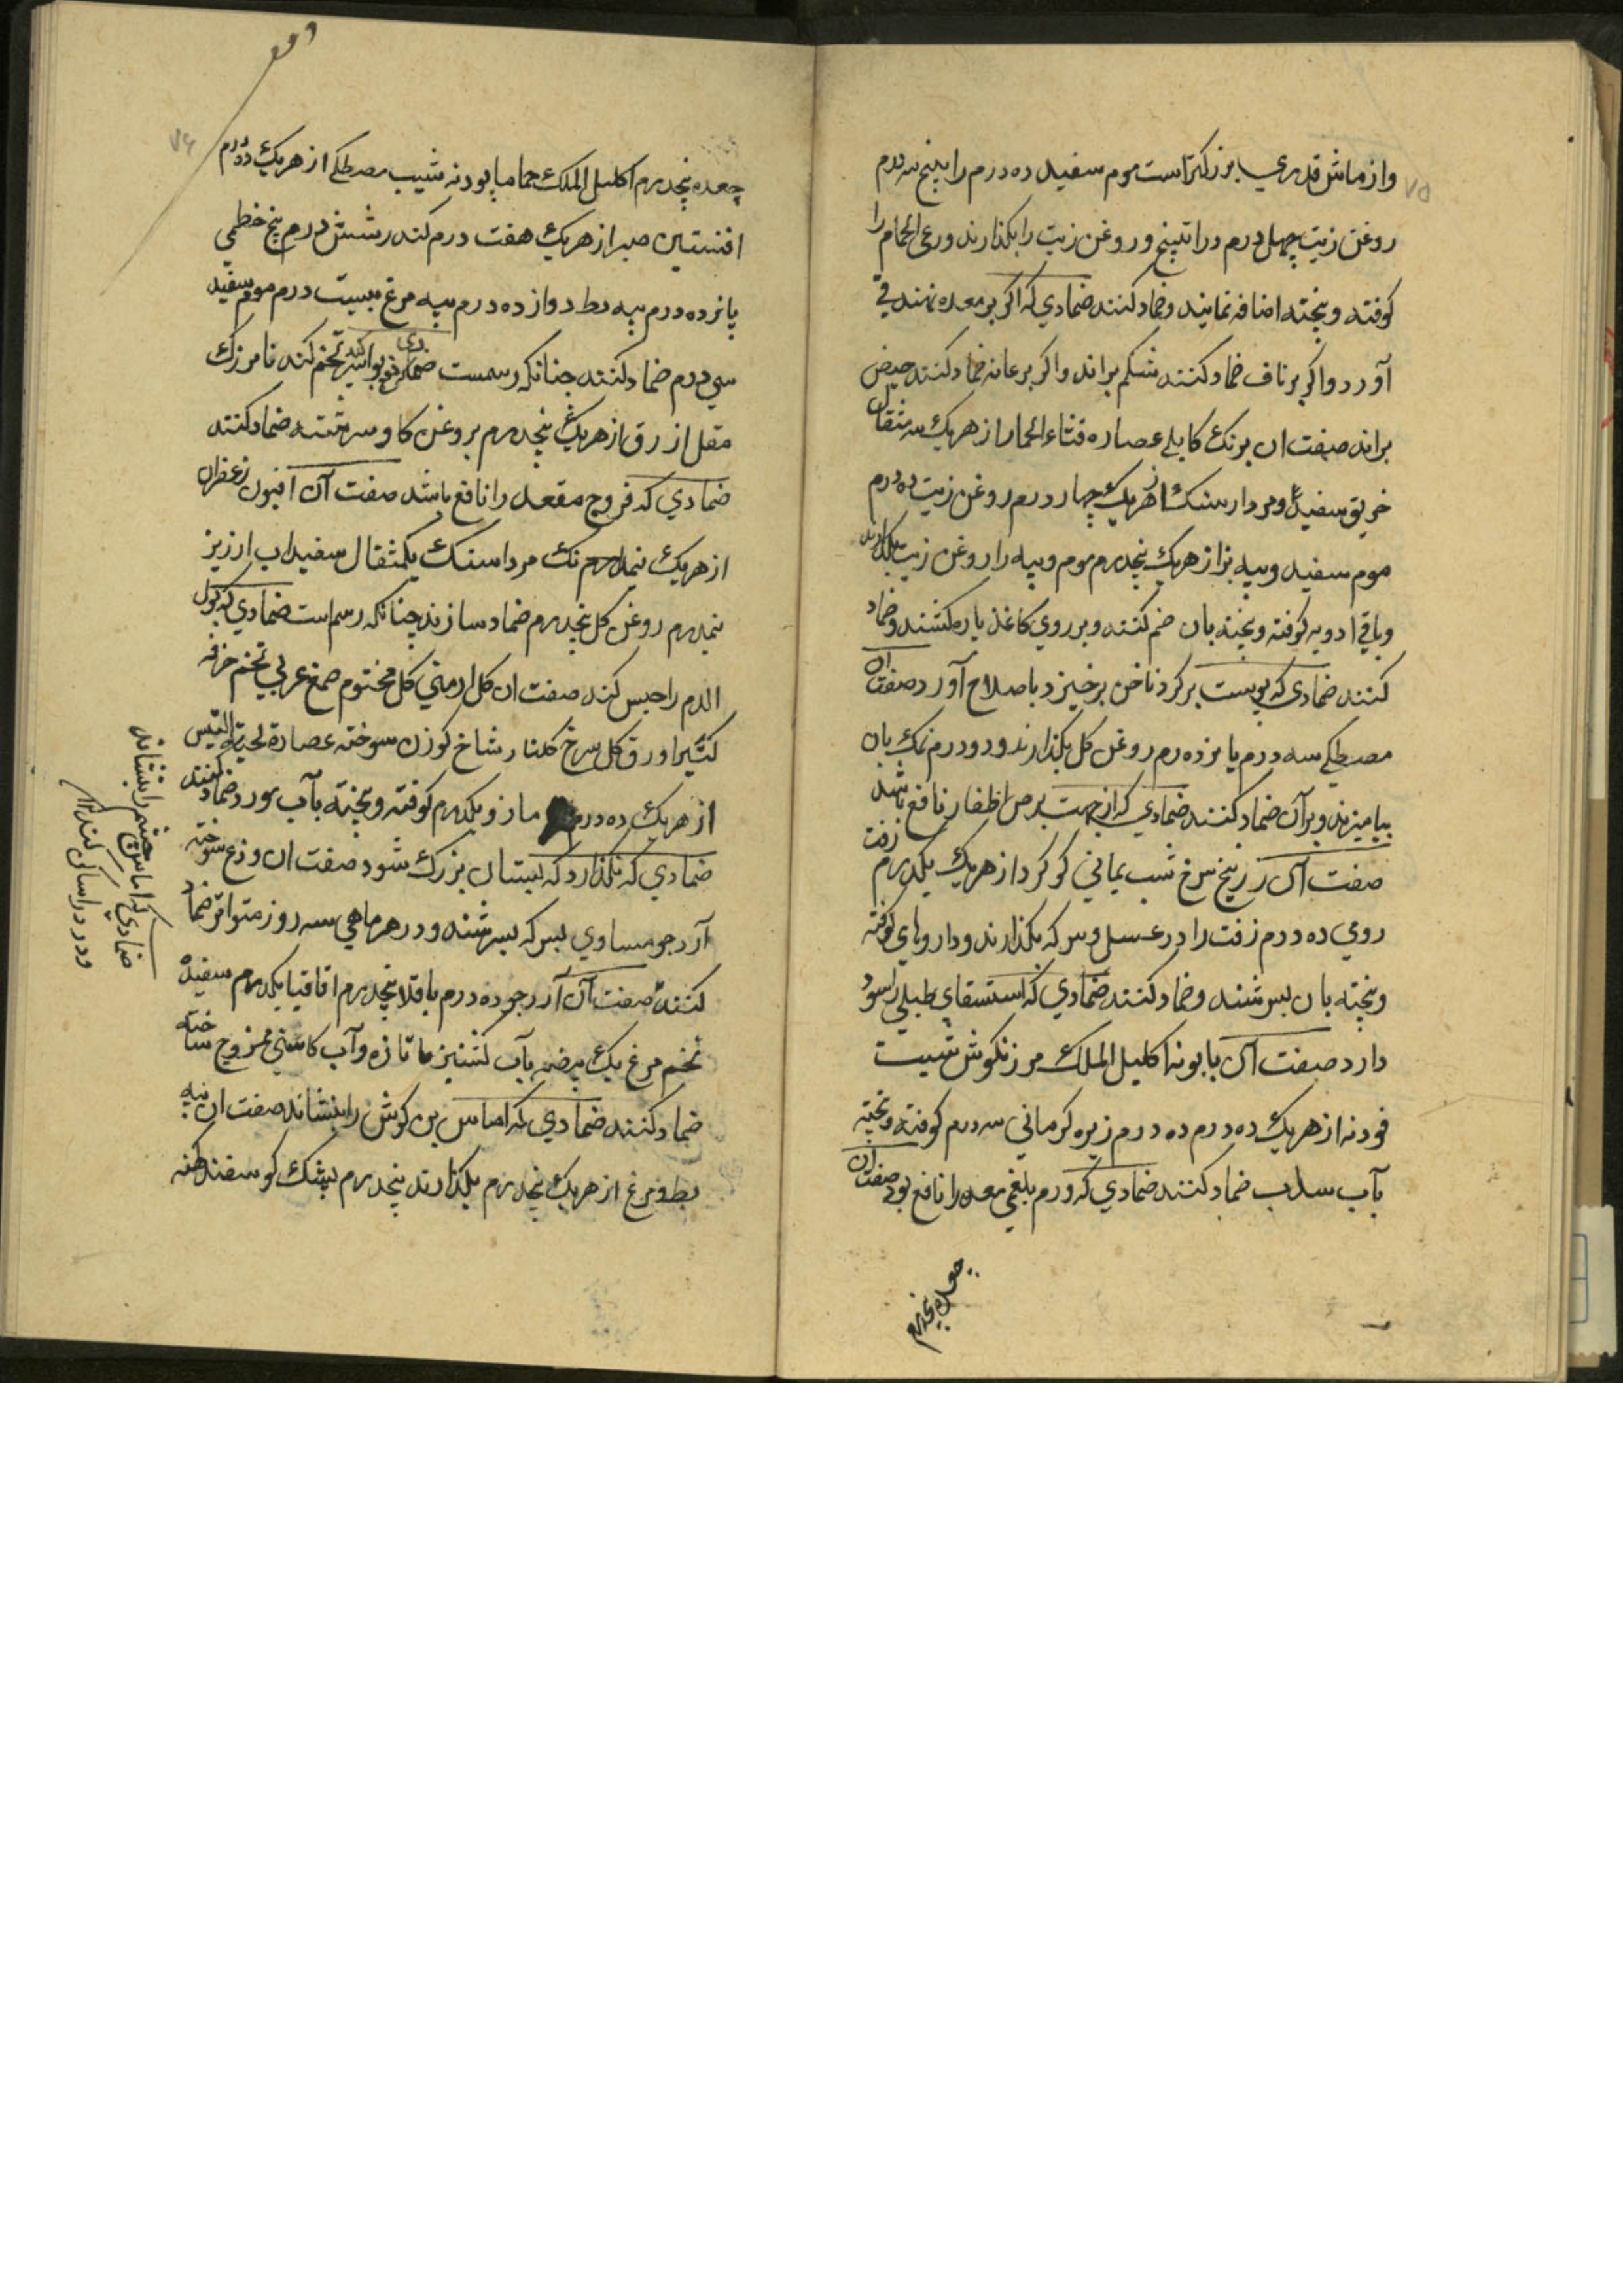 ۷۵
واز ماش قدری بزرگتر است موم سفید ده درم راتینج سه درم
روغن زیت چهل درم و راتینج و روغن زیت را بکذارند ورعی الحمام را
کوفته وبیخته اضافه نمایند وضماد کنند ضمادی که اکر بر معده نهند قی
آورد واکر بر ناف ضماد کنند شکم براند واکر بر عانه ضماد کنند حیض
براند صفت ان برنک کابلی عصاره قثاء الحمار از هریک سه مثقال
خربق سفید ومردارسنک از هریک چهار درم روغن زیت ده درم
موم سفید وپیه بز از هریک پنجدرم موم وپیه را روغن زیت بکذارند
وباقی ادویه کوفته وبیخته بان ضم کنند وبر روی کاغذ پاره کشند وضماد
کنند ضمادی که پوست برکرد ناخن برخیزد باصلاح آورد صفت ان
مصطکی سه درم پانزده درم روغن کل بکذارند ودو درم نمک بان
بیامیزند وبر آن ضماد کنند ضمادی که از جهت برص اظفار نافع باشد
صفت آن زرنیخ سرخ شب یمانی کوکرد از هریک یکدرم زفت
رومی ده درم زفت را در عسل وسرکه بکذارند وداروهای کوفته
وبیخته بان بسرشند وضماد کنند ضمادی که استسقای طبلی را سود
دارد صفت آن بابونه اکلیل الملک مرزنکوش شبت
فودنه از هریک ده درم ده درم زیره کرمانی سه درم کوفته وبیخته
بآب سداب ضماد کنند ضمادی که ورم بلغمی معده را نافع بود صفت ان
جعده پنجدرم
۷۶
جعده پنجدرم اکلیل الملک حماما بابونه شبت مصطکی از هریک ده درم
افسنتین صبر از هریک هفت درم کندر شش درم بیخ خطمی
پانزده درم پیه بط دوازده درم پیه مرغ بیست درم موم سفید
سی درم ضماد کنند چنانکه رسمست ضمادی که بواسیر تخم کندنا مرزک
مقل ازرق از هریک پنجدرم بروغن کاو سرشته ضماد کنند
ضمادی که قروح مقعد را نافع باشد صفت آن افیون زعفران
از هریک نیمدرم مرداسنک یکمثقال سفیداب ارزیز
نیمدرم روغن کل پنجدرم ضماد سازند چنانکه رسم است ضمادی که بول
الدم را حبس کند صفت ان کل ارمنی کل مختوم صمغ عربی تخم خرفه
کتیرا ورق کل سرخ کلنار شاخ کوزن سوخته عصاره لحیة التیس
از هریک ده درم مازو یکدرم کوفته وبیخته بآب مورد ضماد کنند
ضمادی که نکذارد که پستان بزرک شود صفت ان وزغ سوخته
آرد جو مساوی بسرکه بسرشند ودر هر ماهی سه روز متواتر ضماد
کنند صفت آن آرد جو ده درم باقلا پنجدرم اقاقیا یکدرم سفیده
تخم مرغ یک بیضه بآب کشنیز تازه وآب کاسنی ممزوج ساخته
ضماد کنند ضمادی که اماس بن کوش را بنشاند صفت ان پیه
بط ومرغ از هریک پنجدرم بکذارند پنجدرم پشک کوسفند کهنه
ضمادی که اماس چشم را بنشاند
ودرد را ساکن کند